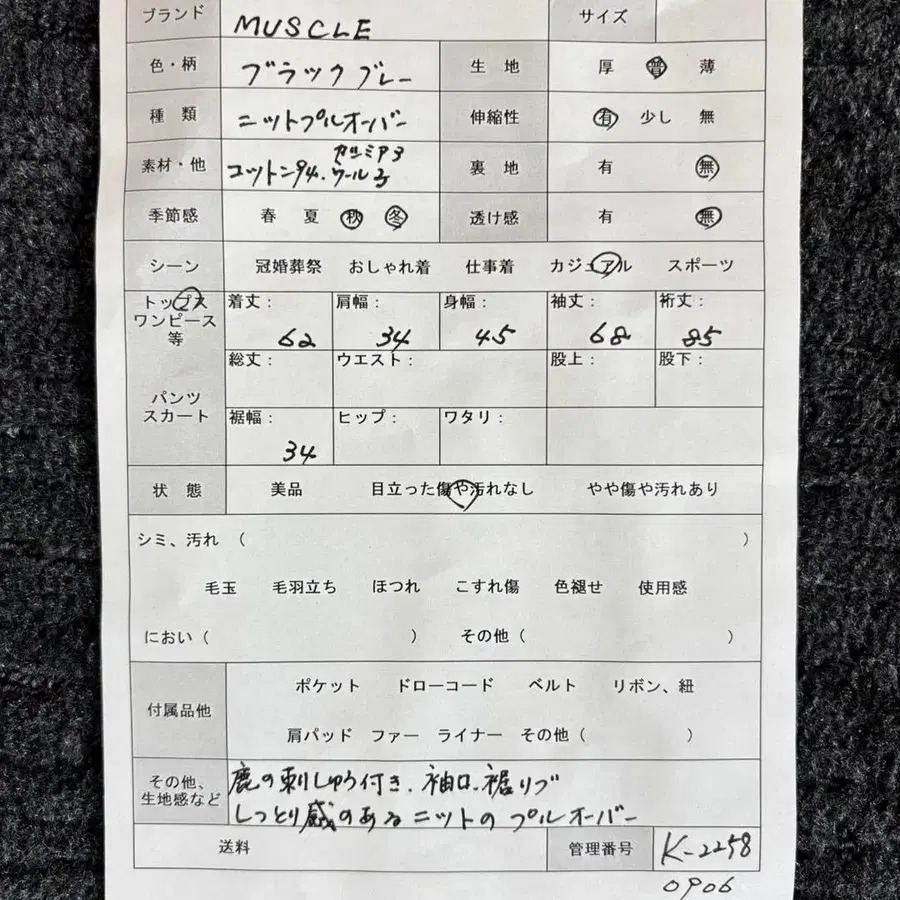 ブランド MUSCLE サイズ
色・柄 ブラックグレー 生地 厚 普 薄
種類 ニットプルオーバー 伸縮性 有 少し 無
カシミア3
素材・他 コットン94.ウール3 裏地 有 無
季節感 春 夏 秋 冬 透け感 有 無
シーン 冠婚葬祭 おしゃれ着 仕事着 カジュアル スポーツ
トップス 着丈: 肩幅: 身幅: 袖丈: 裄丈:
ワンピース
等 62 34 45 68 85
総丈: ウエスト: 股上: 股下:
パンツ
スカート 裾幅: ヒップ: ワタリ:
34
状態 美品 目立った傷や汚れなし やや傷や汚れあり
シミ、汚れ ( )
毛玉 毛羽立ち ほつれ こすれ傷 色褪せ 使用感
におい( ) その他( )
ポケット ドローコード ベルト リボン、紐
付属品他
肩パッド ファー ライナー その他( )
その他、 鹿の刺しゅう付き.袖口.裾リブ
生地感など しっとり感のあるニットのプルオーバー
送料 管理番号 K-2258
0906